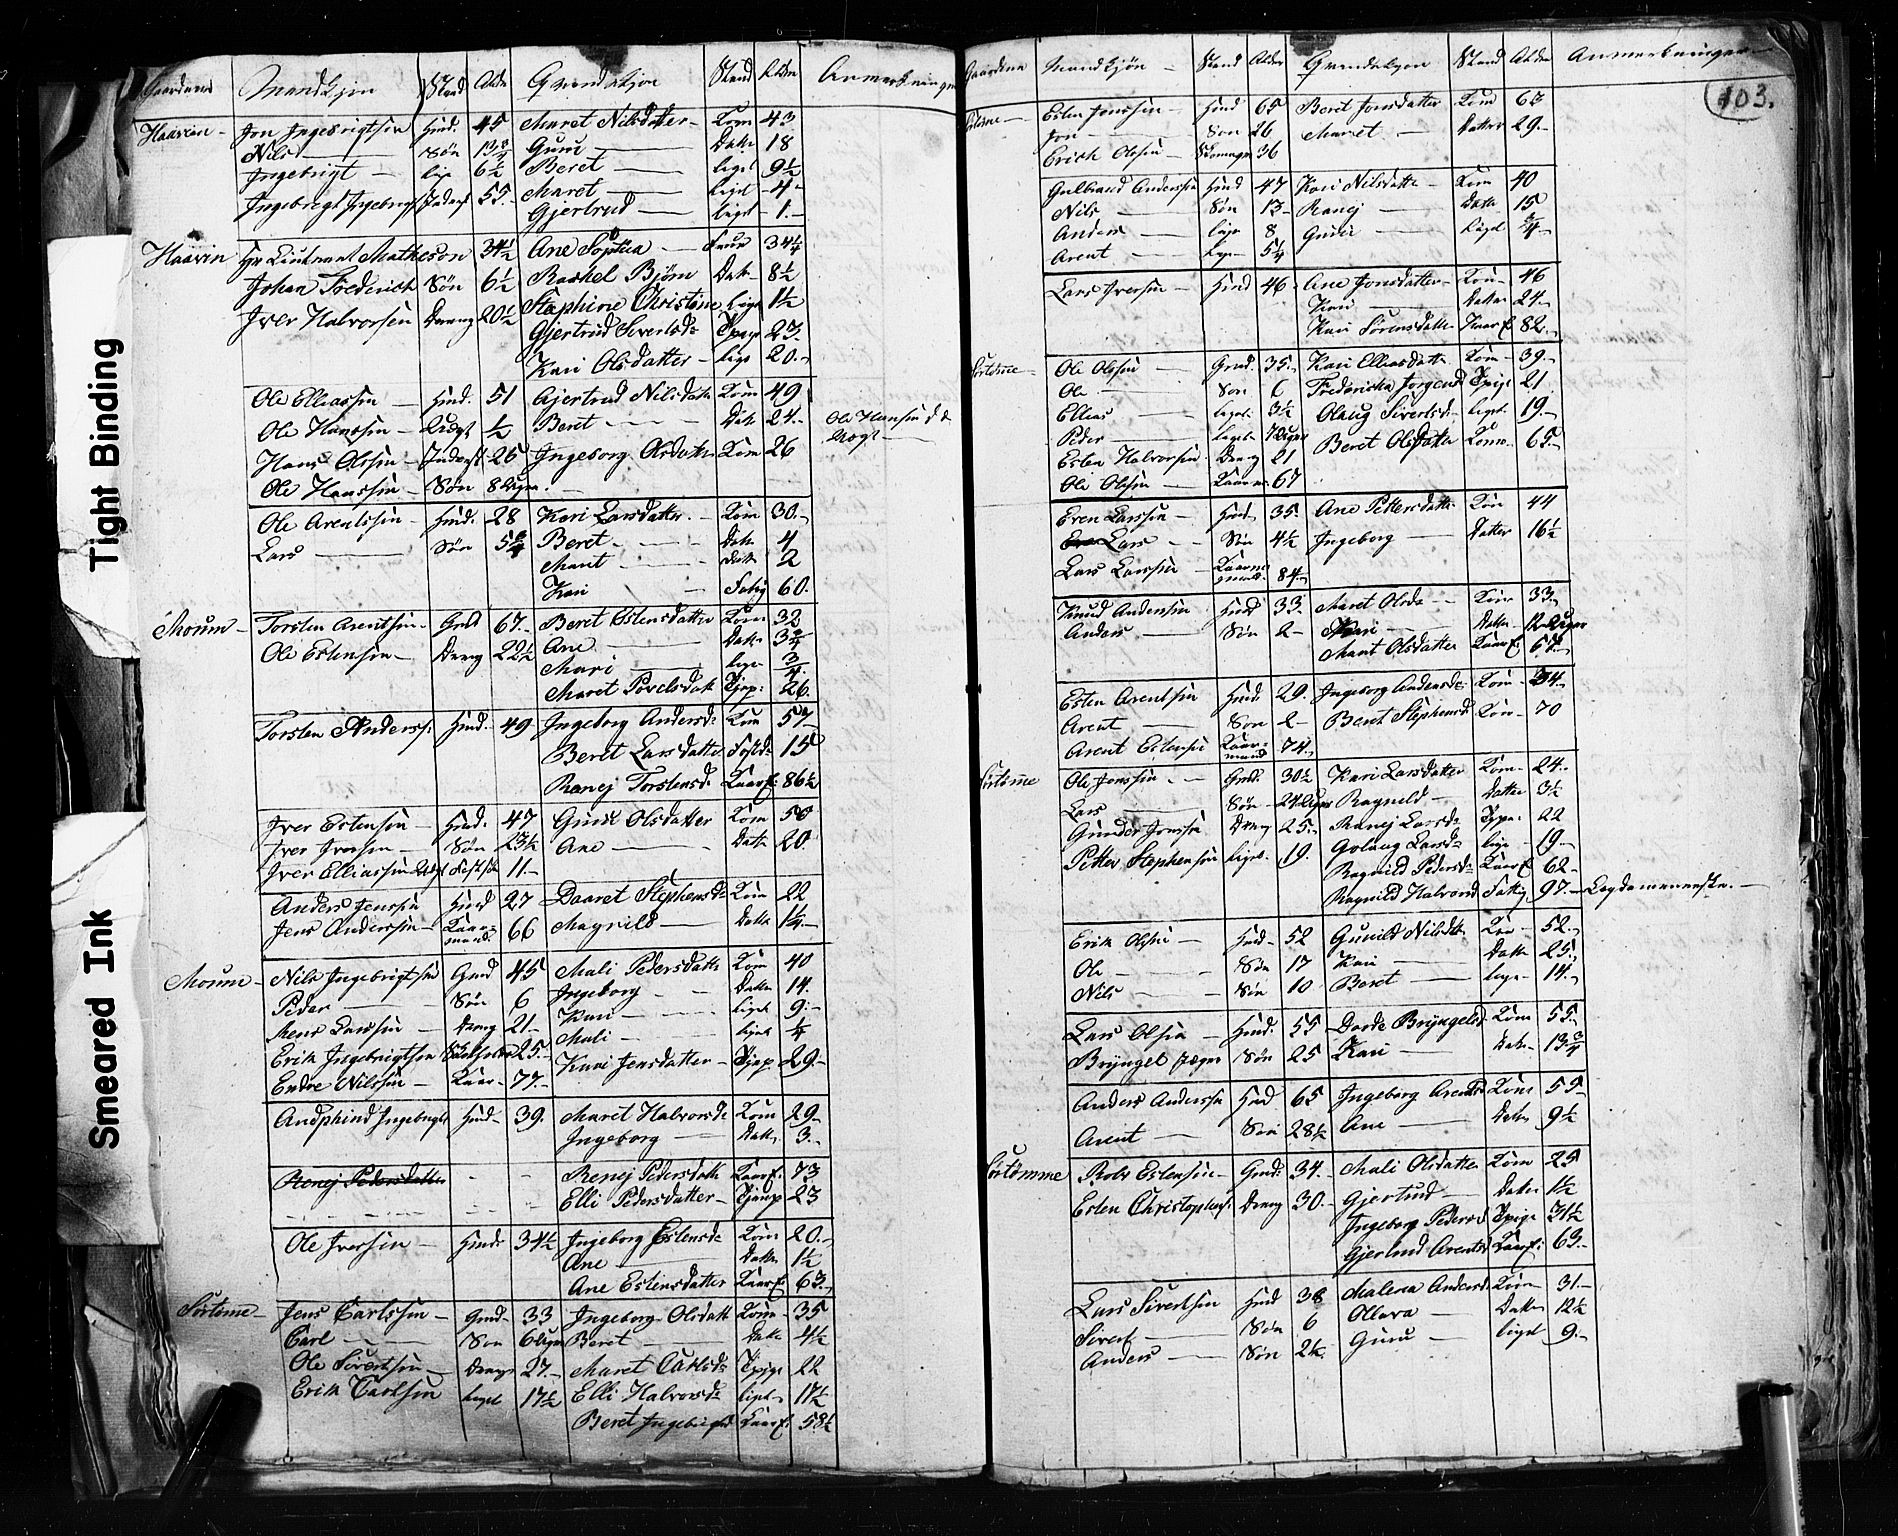 Tight Binding
Smeared Ink
Gaardene Mandkjøn Stand Alder Qvindekjøn Stand Alder Anmerkninger
Haavin Jon Ingebrigtsen Hmd. 45 Maret Nilsdatter Kone 43
Nils Søn 13 3/4 Guru Datter 18
Ingebrigt lige 6 1/2 Beret ligel 9 1/2
Ingebrigt Ingebrigts Inderst 55 Maret ligel 4
Gjertrud ligel 1
Haavin Hr Lieutnant Matheson 34 1/2 Ane Sophia Frue 34 1/4
Johan Frederich Søn 6 1/2 Rachel Bjørn Datr 8 1/2
Iver Halvorsen Dreng 20 1/2 Stephine Christine Ligel 1 1/2
Gjertrud Sivertsd Tpige 23
Kari Olsdatter ligel 20
Ole Elliassen Hmd. 51 Gjertrud Nilsdatter Kone 49
Ole Hanssen 1/2 Beret Datr 24 Ole Hanssen
Hans Olssen Inderst 26 Ingeborg Olsdatter Kone 26
Ole Hanssen Søn 8 Uger
Ole Arentssen Hmd. 28 Kari Larsdatter Kone 30
Lars Søn 5 3/4 Beret Datr 4
Marit Datr 2
Kari Fattig 60
Moum Torsten Arentsen Gmd 67 Beret Estensdatter Kone 32
Ole Estensen Dreng 22 1/2 Ane Datr 3 3/4
Mari lige 3/4
Maret Povelsdatter Tjep: 26
Torsten Anderss: Hmd. 49 Ingeborg Andersd Kone 57
Beret Larsdatter Fostd 15
Ranej Torstensd Kaarf. 86 1/2
Iver Estensen Hmd. 47 Guru Olsdatter Kone 50
Iver Iversen Søn 23 1/2 Ane Datr 20
Iver Elliassen 11
Anders Jenssen Hmd 27 Daaret Stephensd Kone 22
Jens Anderssen Kaarmand 66 Magnild Datter 1 1/4
Moum Nils Ingebrigtsen Gmd 45 Mali Pedersdatter Kone 40
Peder Søn 6 Ingeborg Datter 14
Larssen Dreng 21 Kari ligel 9
Erik Ingebrigtsen 25 Mali ligel 1/4
Endre Nilssen Kaar 77 Kari Jensdatter Tjep 29
Andphind Ingebrigts Hmd 39 Maret Halvorsd Kone 29
Ingeborg Datr 3
Renej Pedersdatter Renej Pedersdatter Kaarf. 73
Elli Pedersdatter Tjenp 23
Ole Iversen Hmd. 34 1/2 Ingeborg Estensd Kone 20
Ane Datter 1 1/2
Ane Estensdatter Kaarf 63
Sørtøme Jens Carlssen Gmd 33 Ingeborg Olsdatter Kone 35
Carl Søn 6 Uger Beret Datr 4 1/2
Ole Sivertsen Dreng 27 Maret Carlsd Tpige 22
Erik Carlsen ligel 17 1/2 Elli Halvorsd ligel 17 1/2
Beret Ingebrigtsd Kaarf. 58 1/2
Gaardene Mandkjøn Stand Alder Qvindekjøn Stand Alder Anmerkninger
103.
Sørtøme Esten Jonssen Hmd 65 Beret Jonsdatter Kone 63
Jon Søn 26 Maret Datter 29
Erich Olssen 36
Gulbrand Anderssen Hmd 47 Kari Nilsdatter Kone 40
Nils Søn 13 Ranej Datr 15
Anders lige 8 Guru ligel 3/4
Arent lige 5 1/4
Lars Iversen Hmd 46 Ane Jonsdatter Kone 46
Kari Datter 24
Kari Sørensdatter Kaarf. 82
Sørtøme Ole Olssen Gmd. 35 Kari Elliasdatter Kone 39
Ole Søn 6 Fredericka Jørgensd Tpige 21
Ellias ligel 3 1/2 Olaug Sivertsd ligel 19
Peder ligel 7 Uger Beret Olsdatter Kone 65
Esten Halvorsen Dreng 21
Ole Olssen Kaarm 67
Even Larssen Hmd 35 Ane Pettersdatter Kone 44
Even Lars Søn 4 1/2 Ingeborg Datter 16 1/2
Lars Larssen Kaarmand 84
Knud Anderssen Hmd 33 Maret Olsd Kone 33
Anders Søn 2 Kari Datter 12 Uger
Marit Olsdatter Kaarf. 65
Esten Arentsen Hmd 29 Ingeborg Andersd Kone 34
Arent Søn 2 Beret Stephensd Kone 70
Arent Estensen Kaarmand 74
Sørtøme Ole Jonssen Gmd. 30 1/2 Kari Larsdatter Kone 24
Lars Søn 24 Uger Ragnild Datter 3 1/2
Gunder Jonssen Dreng 25 Ranej Larsd Tpge 22
Petter Stephensen ligel. 19 Golaug Larsd lige 19
Ragnild Pedersd Kaarf 62
Ragnild Halvorsd Fattig 97 Legdemenneske
Erik Olssen Hmd 52 Gunild Nilsdatter Kone 52
Ole Søn 17 Kari Datter 25
Nils Søn 10 Beret lige 14
Lars Olsen Hmd. 55 Dorde Bryngelsd Kone 55
Bryngel Søn 25 Kari Datr 13 3/4
Anders Anderssen Hmd 65 Ingeborg Arentsd Kone 55
Arent Søn 28 1/2 Ane Datr 9 1/2
Sørtømme Rolv Estensen Gmd: 34 Mali Olsdatter Kone 25
Esten Christophers: Dreng 30 Gjertrud Datter 1 1/2
Ingeborg Pedersd Tpige 31 1/2
Gjertrud Arentsd Kaarf: 69
Lars Sivertsen Hmd 38 Malena Andersd Kone 31
Sivert Søn 6 Ollava Datter 12 1/2
Anders Søn 2 1/2 Guru ligel 9